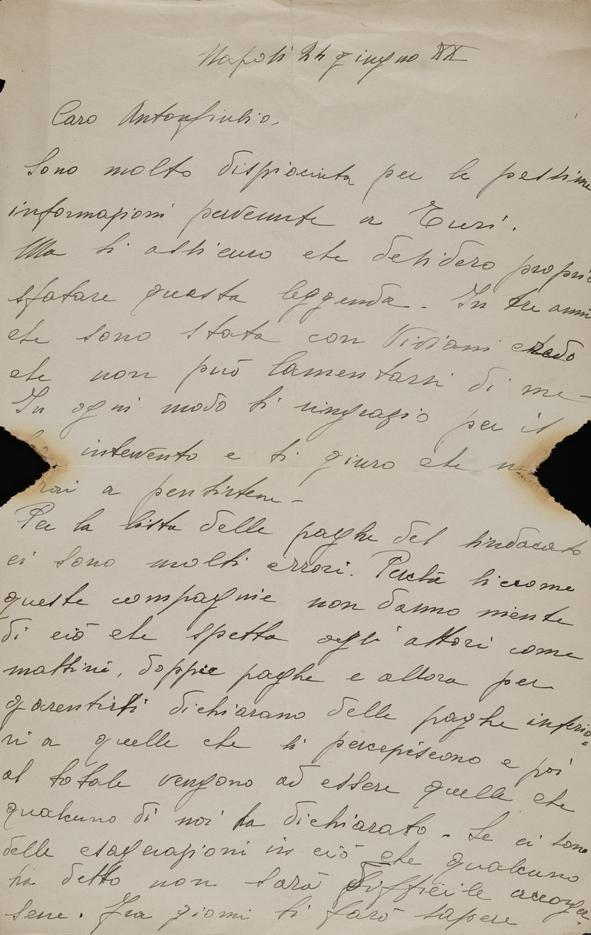 Napoli 24 giugno XX
Caro Antongiulio.
Sono molto dispiaciuta per le pessime
informazioni pervenute a Turi.
Ma ti assicuro che desidero proprio
sfatare questa leggenda - In tre anni
che sono stata con Viviani credo
che non può lamentarsi di me -
In ogni modo ti ringrazio per il
intervento e ti giuro che
rai a pentirtene -
Per la lista delle paghe del sindacato
ci sono molti errori. Perché siccome
queste compagnie non danno niente
di ciò che spetta agli attori come
mattiné, doppie paghe e allora per
garentirsi dichiarano delle paghe inferio=
ri a quelle che si percepiscono e poi
al totale vengono ad essere quelle che
qualcuno di noi ha dichiarato - Se ci sono
delle esagerazioni in ciò che qualcuno
ha detto non sarà difficile accorger=
sene. Fra giorni ti farò sapere